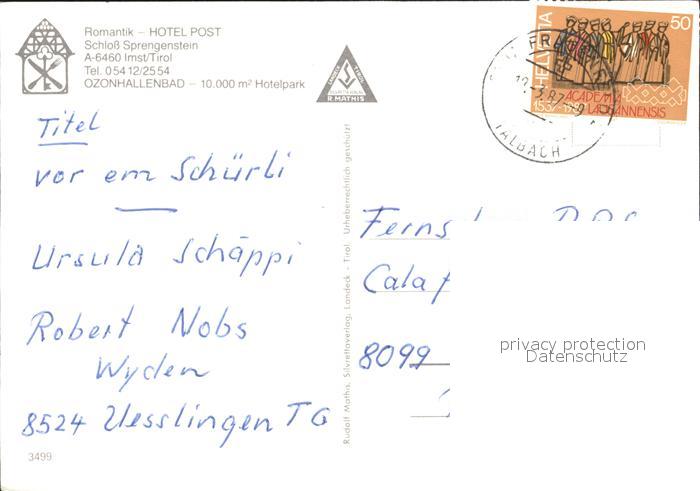 Romantik – HOTEL POST
Schloß Sprengenstein
A-6460 Imst/Tirol
Tel. 05412/2554
OZONHALLENBAD – 10.000 m² Hotelpark
R. MATHIS
HELVETIA
50
ACADEMIA
LAUSANNENSIS
Titel
vor em Schürli
Ursula Schäppi
Robert Nobs
Wyden
8524 Uesslingen TG
3499
Rudolf Mathis, Silvrettaverlag, Landeck - Tirol. Urheberrechtlich geschützt!
Ferns
Calaf
8099
privacy protection
Datenschutz